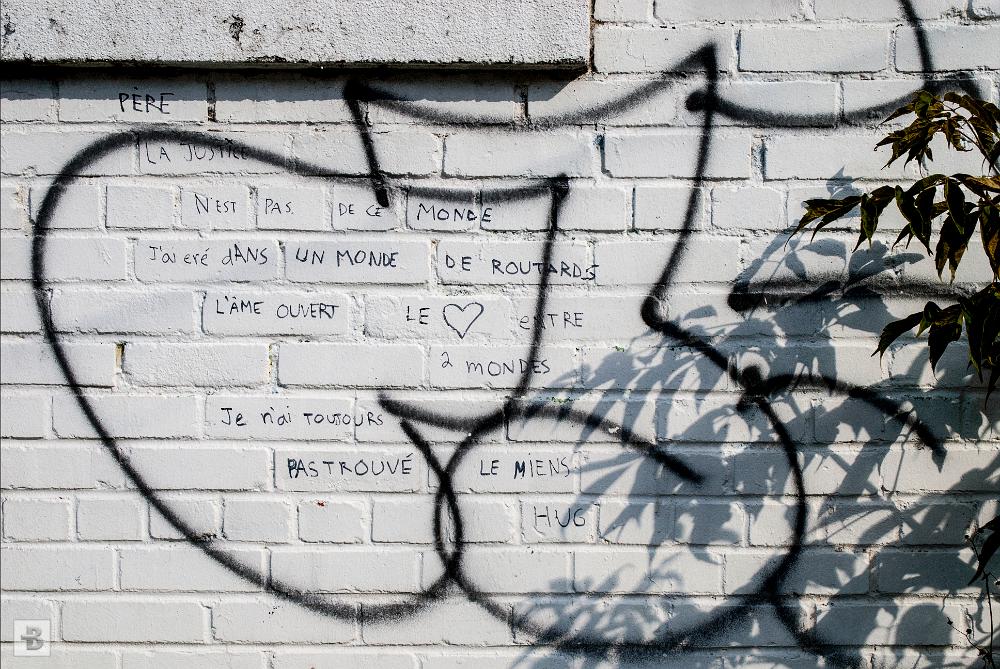 PÈRE
LA JUSTICE
N'EST PAS DE CE MONDE
J'ai eré dANS UN MONDE DE ROUTARDS
L'ÂME OUVERT LE ♡ eNTRE
2 MONDES
Je n'ai TOUJOURS
PAS TROUVÉ LE MIENS
HUG